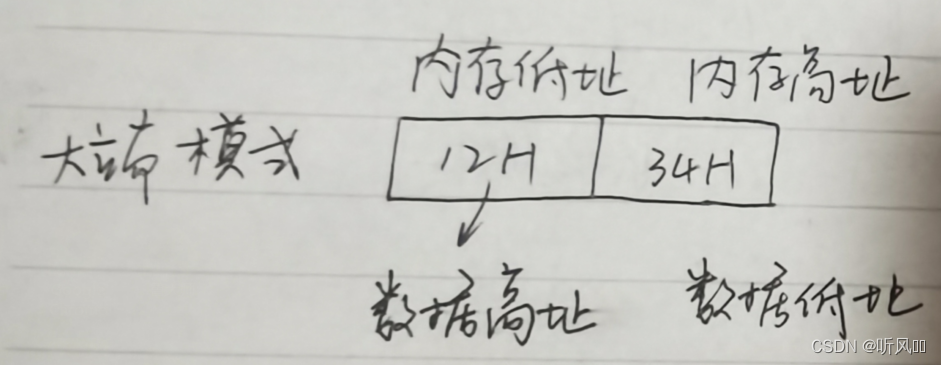 内存低址 内存高址
大端模式 12H 34H
数据高址 数据低址
CSDN @听风